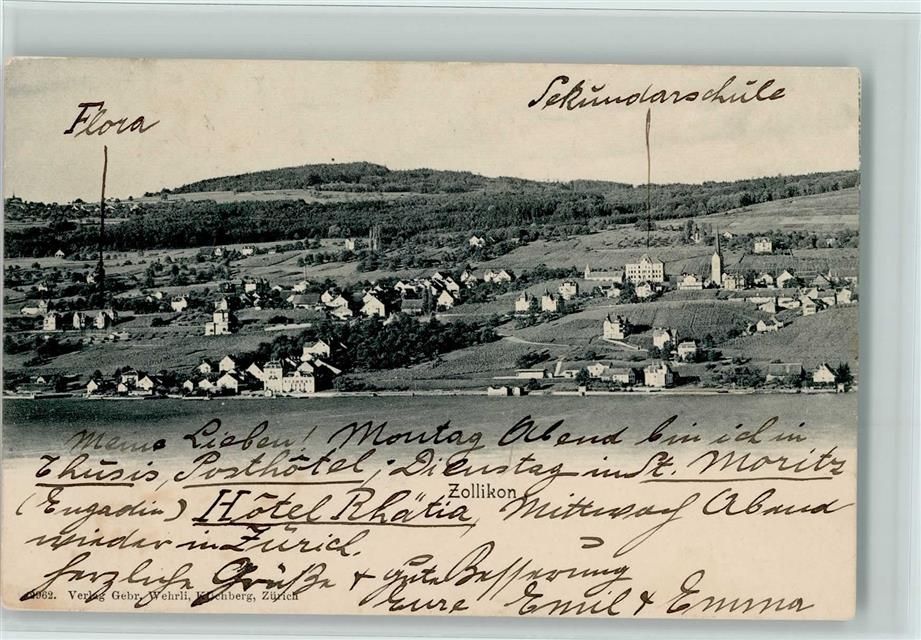 Flora
Sekundarschule
Meine Lieben! Montag Abend bin ich in
Thusis, Posthôtel; Dienstag in St. Moritz
Zollikon
(Engadin) Hôtel Rhätia, Mittwoch Abend
wieder in Zürich.
herzliche Grüße + gute Besserung
2962. Verlag Gebr. Wehrli, Kilchberg, Zürich
Eure Emil & Emma